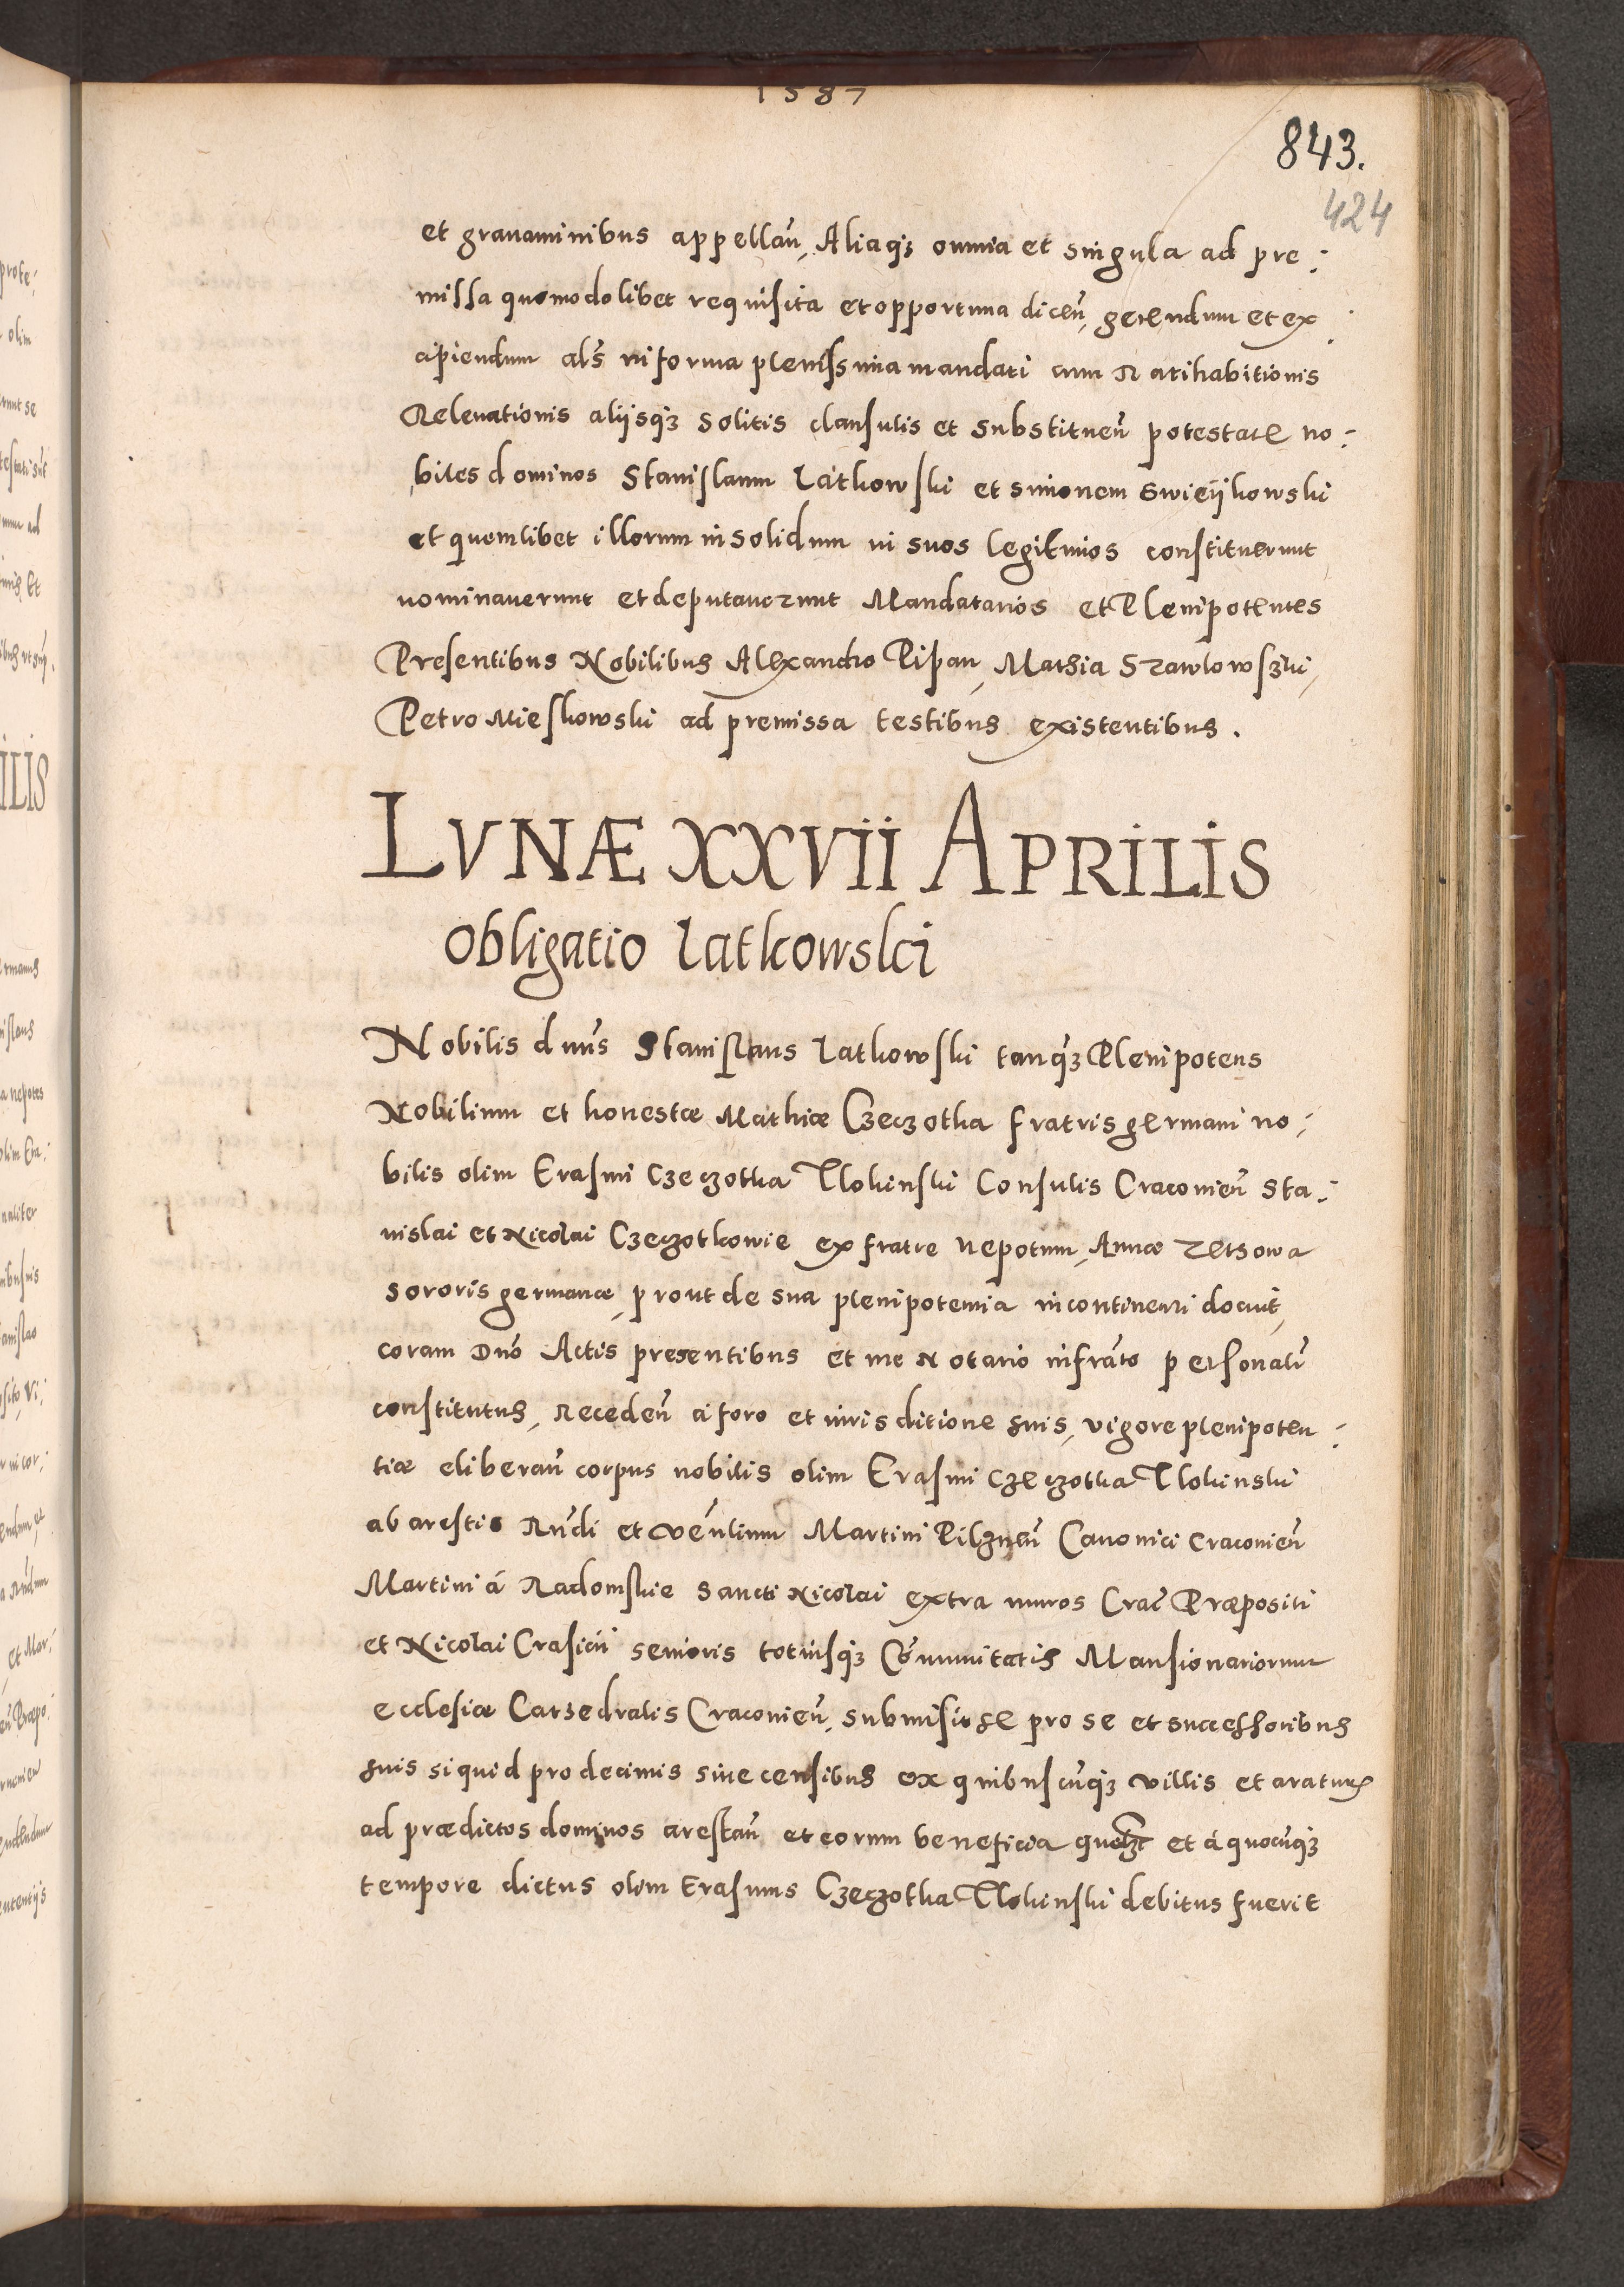 1587
843.
424
et grauaminibus appellan̄, Aliaqꝫ omnia et singula ad pre:
missa quomodolibet requisita et opportuna dicen̄, gerendum et ex:
cipiendum als̄ in forma plenissima mandati cum Ratihabitionis
Releuationis aliisqꝫ solitis clausulis et substituen̄ potestate no:
biles dominos Stanislaum Latkowski et Simonem Swieijkowski
et quemlibet illorum insolidum in suos legitimos constituerunt
nominauerunt et deputauerunt Mandatarios et Plenipotentes
Presentibus Nobilibus Alexandro Pipan, Mathia Szawlowsżki,
Petro Mieskowski ad premissa testibus existentibus.
LVNÆ XXVII APRILIS
Obligatio Latkowski
Nobilis dnūs Stanislaus Latkowski tanq̄ꝫ Plenipotens
Nobilium et honestæ Mathiæ Czeczotka fratris germani no:
bilis olim Erasmi Czeczotka Tlokinski Consulis Cracouien̄ Sta:
nislai et Nicolai Czeczotkowie ex fratre nepotum, Annæ
sororis germanæ, prout de sua plenipotentia incontinenti docuit,
coram Dnō Actis presentibus et me Notario infrāto personalr̄
constitutus, Receden̄ a foro et iurisditione suis, vigore plenipoten:
tiæ eliberan̄ corpus nobilis olim Erasmi Czeczotka Tlokinski
ab arestis Rn̄di et Ven̄lium Martini Pilznen̄ Canonici Cracouien̄
Martini á Radomskie Sancti Nicolai extra muros Crac̄ Præpositi
et Nicolai Crasicii senioris totiusqꝫ Cōmunitatis Mansionariorum
ecclesiæ Catedralis Cracouien̄, submisit se pro se et successoribus
suis si quid pro decimis siue censibus ex quibuscūqꝫ villis et araturis
ad prædictos dominos arestan̄ et eorum beneficia et á quocūqꝫ
tempore dictus olim Erasmus Czeczotka Tlokinski debitus fuerit